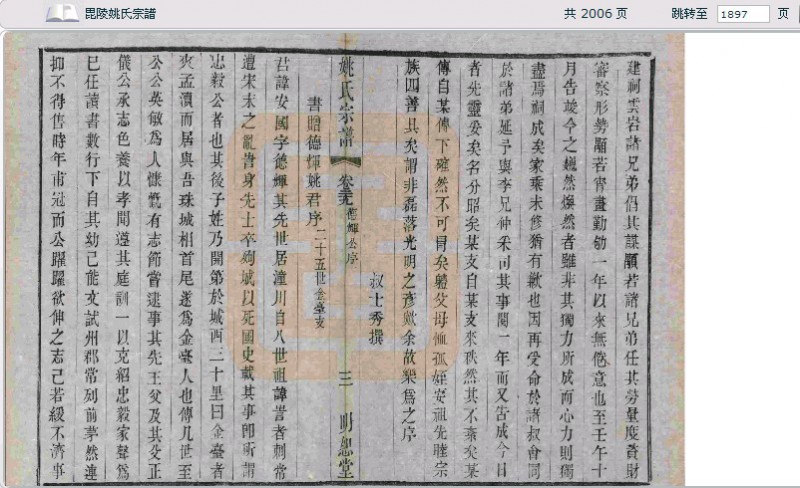 毘陵姚氏宗譜
共 2006 页
跳转至 1897 页
建祠雲岩諸兄弟倡其謀願若諸兄弟任其勞量度資財
審察形勢願若宵晝勤劬一年以來無倦意也至壬午十
月告竣今之巍然煥然者雖非其獨力所成而心力則獨
盡焉祠成矣家乘未修猶有歉也因再受命於諸叔會同
於諸弟延予與李兄仲釆司其事閱一年而又告成今日
者先靈妥矣名分昭矣某支自某支來秩然其不紊矣某
傳自某傳下確然不可冐矣體父母恤孤姪安祖先睦宗
族四善具矣謂非磊落光明之彥歟余故樂為之序
叔士秀撰
姚氏宗譜
卷三元
德輝公序
三
明恕堂
書贈德輝姚君序
二十五世金臺支
君諱安國字德輝其先世居潼川自八世祖諱訔者刺常
遭宋末之亂訔身先士卒殉城以死國史載其事卽所謂
忠毅公者也其後子姓乃開第於城西二十里曰金臺者
夾孟瀆而居與吾珠城相首尾遂為金臺人也傳几世至
公公英敏為人慷慨有志節嘗逮事其先王父及其父正
儀公承志色養以孝聞遵其庭訓一以克紹忠毅家聲為
已任讀書數行下自其幼已能文試州郡常列前茅然連
抑不得售時年甫冠而公躍躍欲伸之志已若緩不濟事